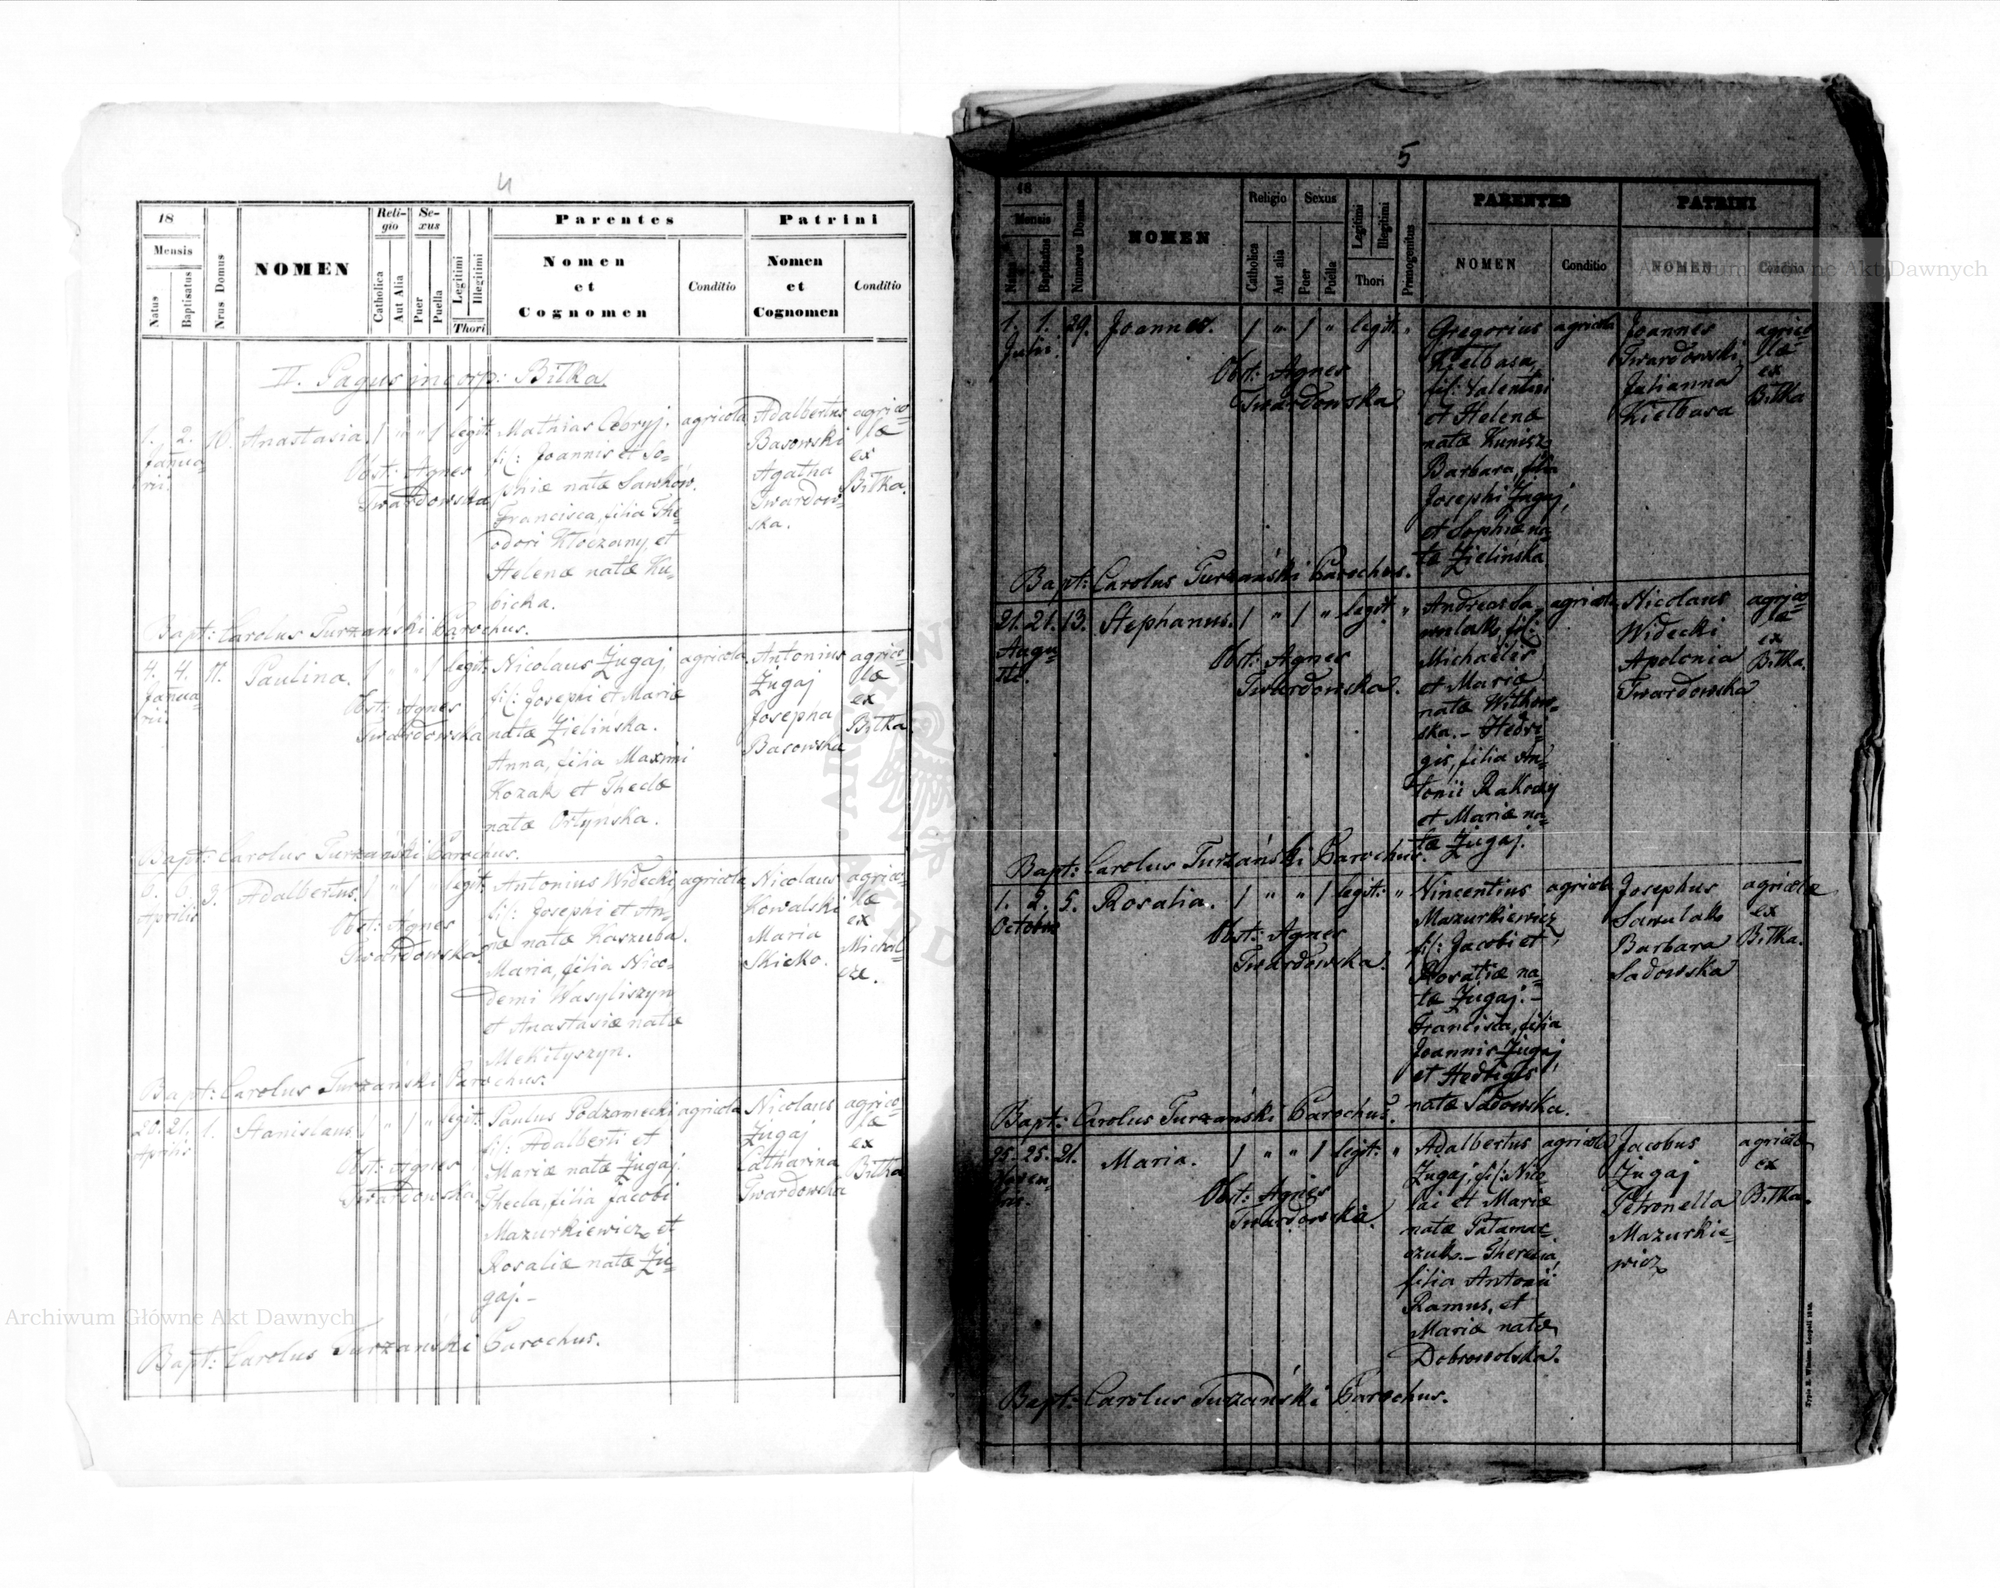 4
18
Mensis
Natus
Baptisatus
Nrus Domus
NOMEN
Reli-
gio
Catholica
Aut Alia
Se-
xus
Puer
Puella
Legitimi
Illegitimi
Thori
Parentes
Nomen
et
Cognomen
Conditio
Patrini
Nomen
et
Cognomen
Conditio
II. Pagus incorp: Bilka
1. 2. 16. Anastasia. / " " / legit:
Janua-
rii.
Obst: Agnes
Twardowska
Mathias Cebryj,
fil: Joannis et So-
phiæ natæ Sawków.
Francisca, filia The-
odori Kłoczany, et
Helenæ natæ Ku-
bicka.
agricola
Adalbertus
Basowski
Agatha
Twardow-
ska.
agrico-
læ
ex
Bilka.
Bapt: Carolus Turzański Parochus.
4. 4. 11. Paulina. / " " / legit:
Janua-
rii.
Obst: Agnes
Twardowska
Nicolaus Zugaj,
fil: Josephi et Mariæ
natæ Zielinska.
Anna, filia Maximi
Kozak et Theclæ
natæ Ortyńska.
agricola
Antonius
Zugaj
Josepha
Basowska
agrico-
læ
ex
Bilka
Bapt: Carolus Turzański Parochus.
6. 6. 3. Adalbertus. / " / " legit:
Aprilis
Obst: Agnes
Twardowska.
Antonius Widecki
fil: Josephi et An-
næ natæ Kaszuba.
Maria, filia Nico-
demi Wasyliszyn
et Anastasiæ natæ
Mekityszyn.
agricola
Nicolaus
Kowalski
Maria
Skicko.
agrico-
læ
ex
Michal-
cze.
Bapt: Carolus Turzański Parochus.
20. 21. 1. Stanislaus. / " / " legit:
Aprilis
Obst: Agnes
Twardowska
Paulus Podzamecki
fil: Adalberti et
Mariæ natæ Zugaj.
Thecla, filia Jacobi
Mazurkiewicz et
Rosaliæ natæ Zu-
gaj.–
agricola
Nicolaus
Zugaj
Catharina
Twardowska
agrico-
læ
ex
Bilka
Bapt: Carolus Turzański Parochus.
5
18
Mensis
Natus
Baptisatus
Numerus Domus
NOMEN
Religio
Catholica
Aut alia
Sexus
Puer
Puella
Legitimi
Illegitimi
Thori
Primogenitus
PARENTES
NOMEN
Conditio
PATRINI
NOMEN
Conditio
1. 1. 29. Joannes. / " / " legit: "
Julii
Obst: Agnes
Twardowska
Gregorius
Kielbasa,
fil: Valentini
et Helenæ
natæ Kunisz
Barbara, filia
Josephi Zugaj,
et Sophiæ na-
tæ Zielińska
agricola
Joannes
Twardowski
Julianna
Kielbasa
agrico-
læ
ex
Bilka
Bapt: Carolus Turzański Parochus.
21. 21. 13. Stephanus. / " / " legit: "
Augu-
sti.
Obst: Agnes
Twardowska.
Andreas Sa-
wulak, fil:
Michaelis
et Mariæ
natæ Witkow-
ska.– Hedvi-
gis, filia An-
tonii Rakoczy
et Mariæ na-
tæ Zugaj.
agricola
Nicolaus
Widecki
Apolonia
Twardowska
agrico-
læ
ex
Bilka.
Bapt: Carolus Turzański Parochus.
1. 2. 5. Rosalia. / " " / legit: "
Octobris
Obst: Agnes
Twardowska.
Vincentius
Mazurkiewicz
fil: Jacobi et
Rosaliæ na-
tæ Zugaj.–
Francisca, filia
Joannis Zugaj
et Hedvigis,
natæ Sadowska.
agricola
Josephus
Sawulak
Barbara
Sadowska
agricolæ
ex
Bilka.
Bapt: Carolus Turzański Parochus.
25. 25. 21. Maria. / " " / legit: "
Novem-
bris.
Obst: Agnes
Twardowska.
Adalbertus
Zugaj, fil: Nico-
lai et Mariæ
natæ Patamar-
czuk.– Theresia,
filia Antonii
Ramus, et
Mariæ natæ
Dobrowolska.
agricola
Jacobus
Zugaj
Petronella
Mazurkie-
wicz
agricolæ
ex
Bilka.
Bapt: Carolus Turzański Parochus.
Archiwum Główne Akt Dawnych
Archiwum Główne Akt Dawnych